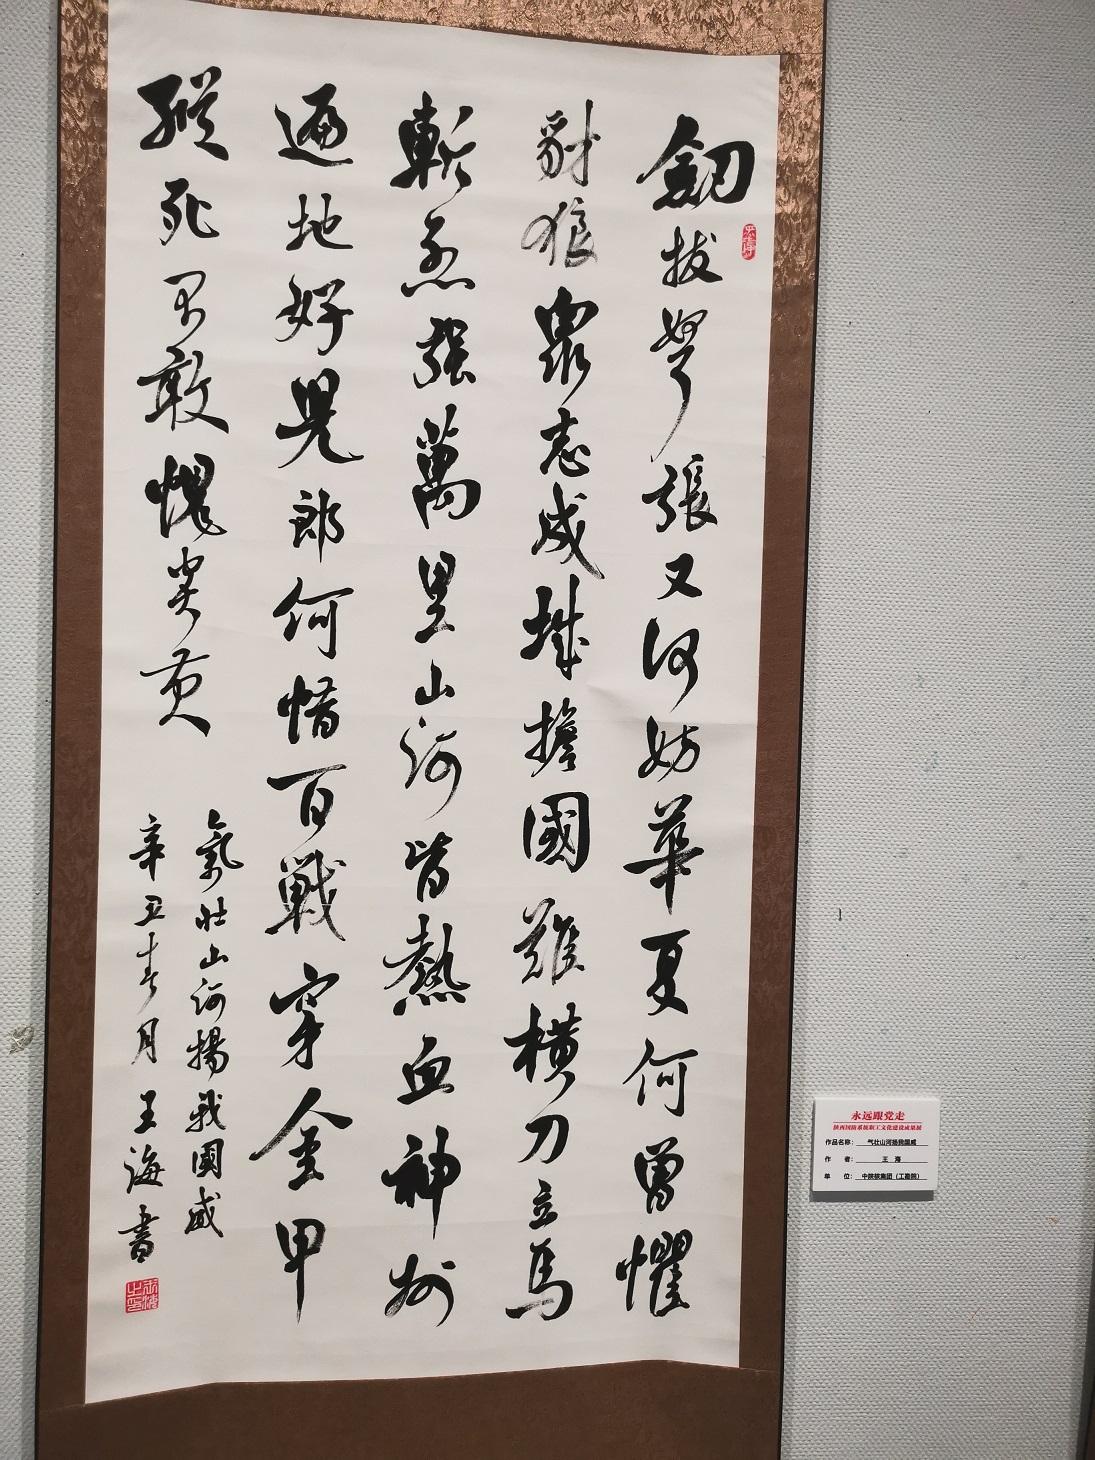 劒拔弩張又何妨華夏何曾懼
豺狼衆志成城擔國難橫刀立馬
斬列强萬里山河皆熱血神州
遍地好兒郎何惜百戰穿金甲
縱死不敢愧炎黃
氣壯山河揚我國威
辛丑春月王海書
永远跟党走
陕西国防系统职工文化建设成果展
作品名称： 气壮山河扬我国威
作 者： 王 海
单 位： 中陕核集团（工勘院）